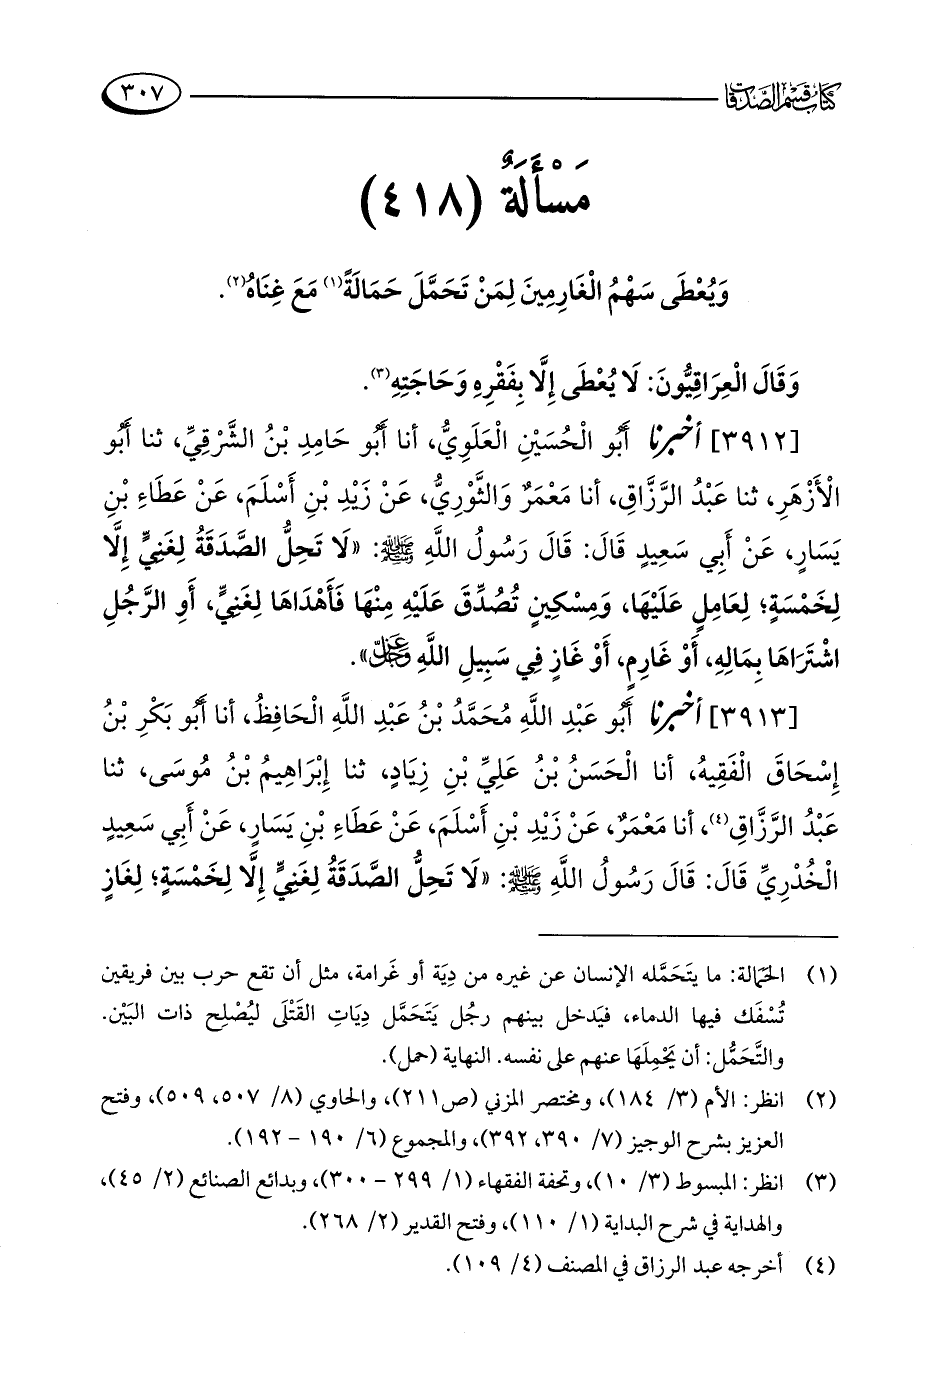 كتاب قسم الصدقات
٣٠٧
مَسْأَلَةٌ (٤١٨)
وَيُعْطَى سَهْمُ الْغَارِمِينَ لِمَنْ تَحَمَّلَ حَمَالَةً(١) مَعَ غِنَاهُ(٢).
وَقَالَ الْعِرَاقِيُّونَ: لَا يُعْطَى إِلَّا بِفَقْرِهِ وَحَاجَتِهِ(٣).
[٣٩١٢] أخبرنا أَبُو الْحُسَيْنِ الْعَلَوِيُّ، أنا أَبُو حَامِدِ بْنُ الشَّرْقِيِّ، ثنا أَبُو
الْأَزْهَرِ، ثنا عَبْدُ الرَّزَّاقِ، أنا مَعْمَرٌ وَالثَّوْرِيُّ، عَنْ زَيْدِ بْنِ أَسْلَمَ، عَنْ عَطَاءِ بْنِ
يَسَارٍ، عَنْ أَبِي سَعِيدٍ قَالَ: قَالَ رَسُولُ اللَّهِ ﷺ: «لَا تَحِلُّ الصَّدَقَةُ لِغَنِيٍّ إِلَّا
لِخَمْسَةٍ؛ لِعَامِلٍ عَلَيْهَا، وَمِسْكِينٍ تُصُدِّقَ عَلَيْهِ مِنْهَا فَأَهْدَاهَا لِغَنِيٍّ، أَوِ الرَّجُلِ
اشْتَرَاهَا بِمَالِهِ، أَوْ غَارِمٍ، أَوْ غَازٍ فِي سَبِيلِ اللَّهِ عَزَّ وَجَلَّ».
[٣٩١٣] أخبرنا أَبُو عَبْدِ اللَّهِ مُحَمَّدُ بْنُ عَبْدِ اللَّهِ الْحَافِظُ، أنا أَبُو بَكْرِ بْنُ
إِسْحَاقَ الْفَقِيهُ، أنا الْحَسَنُ بْنُ عَلِيِّ بْنِ زِيَادٍ، ثنا إِبْرَاهِيمُ بْنُ مُوسَى، ثنا
عَبْدُ الرَّزَّاقِ(٤)، أنا مَعْمَرٌ، عَنْ زَيْدِ بْنِ أَسْلَمَ، عَنْ عَطَاءِ بْنِ يَسَارٍ، عَنْ أَبِي سَعِيدٍ
الْخُدْرِيِّ قَالَ: قَالَ رَسُولُ اللَّهِ ﷺ: «لَا تَحِلُّ الصَّدَقَةُ لِغَنِيٍّ إِلَّا لِخَمْسَةٍ؛ لِغَازٍ
(١) الحَمَالة: ما يتَحَمَّله الإنسان عن غيره من دِيَة أو غَرامة، مثل أن تقع حرب بين فريقين
تُسْفَك فيها الدماء، فيَدخل بينهم رجُل يَتَحَمَّل دِيَاتِ القَتْلَى ليُصْلِح ذات البَيْن.
والتَّحَمُّل: أن يَحْمِلَهَا عنهم على نفسه. النهاية (حمل).
(٢) انظر: الأم (٣/ ١٨٤)، ومختصر المزني (ص٢١١)، والحاوي (٨/ ٥٠٧، ٥٠٩)، وفتح
العزيز بشرح الوجيز (٧/ ٣٩٠، ٣٩٢)، والمجموع (٦/ ١٩٠ - ١٩٢).
(٣) انظر: المبسوط (٣/ ١٠)، وتحفة الفقهاء (١/ ٢٩٩ - ٣٠٠)، وبدائع الصنائع (٢/ ٤٥)،
والهداية في شرح البداية (١/ ١١٠)، وفتح القدير (٢/ ٢٦٨).
(٤) أخرجه عبد الرزاق في المصنف (٤/ ١٠٩).